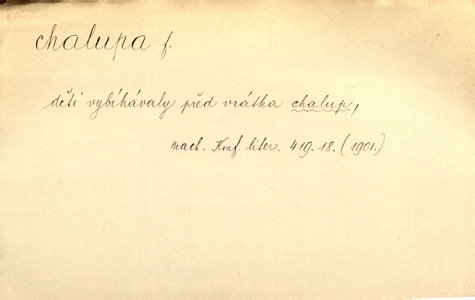 chalupa f.
děti vybíhávaly před vrátka chalup,
Mach. Konf. liter. 419. 18. (1901.)